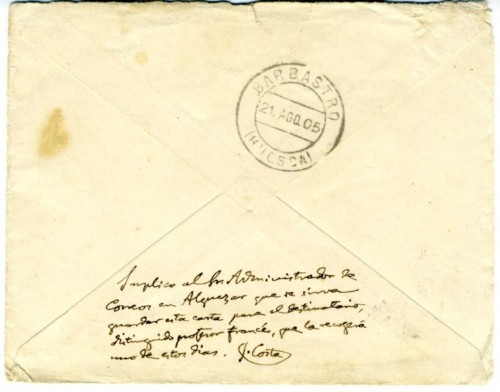 BARBASTRO
21. AGO. 05
(HUESCA)
Suplico al Sr. Administrador de
Correos en Alquezar que se sirva
guardar esta carta para el destinatario,
distinguido profesor francés, que la recogerá
uno de estos dias. J. Costa